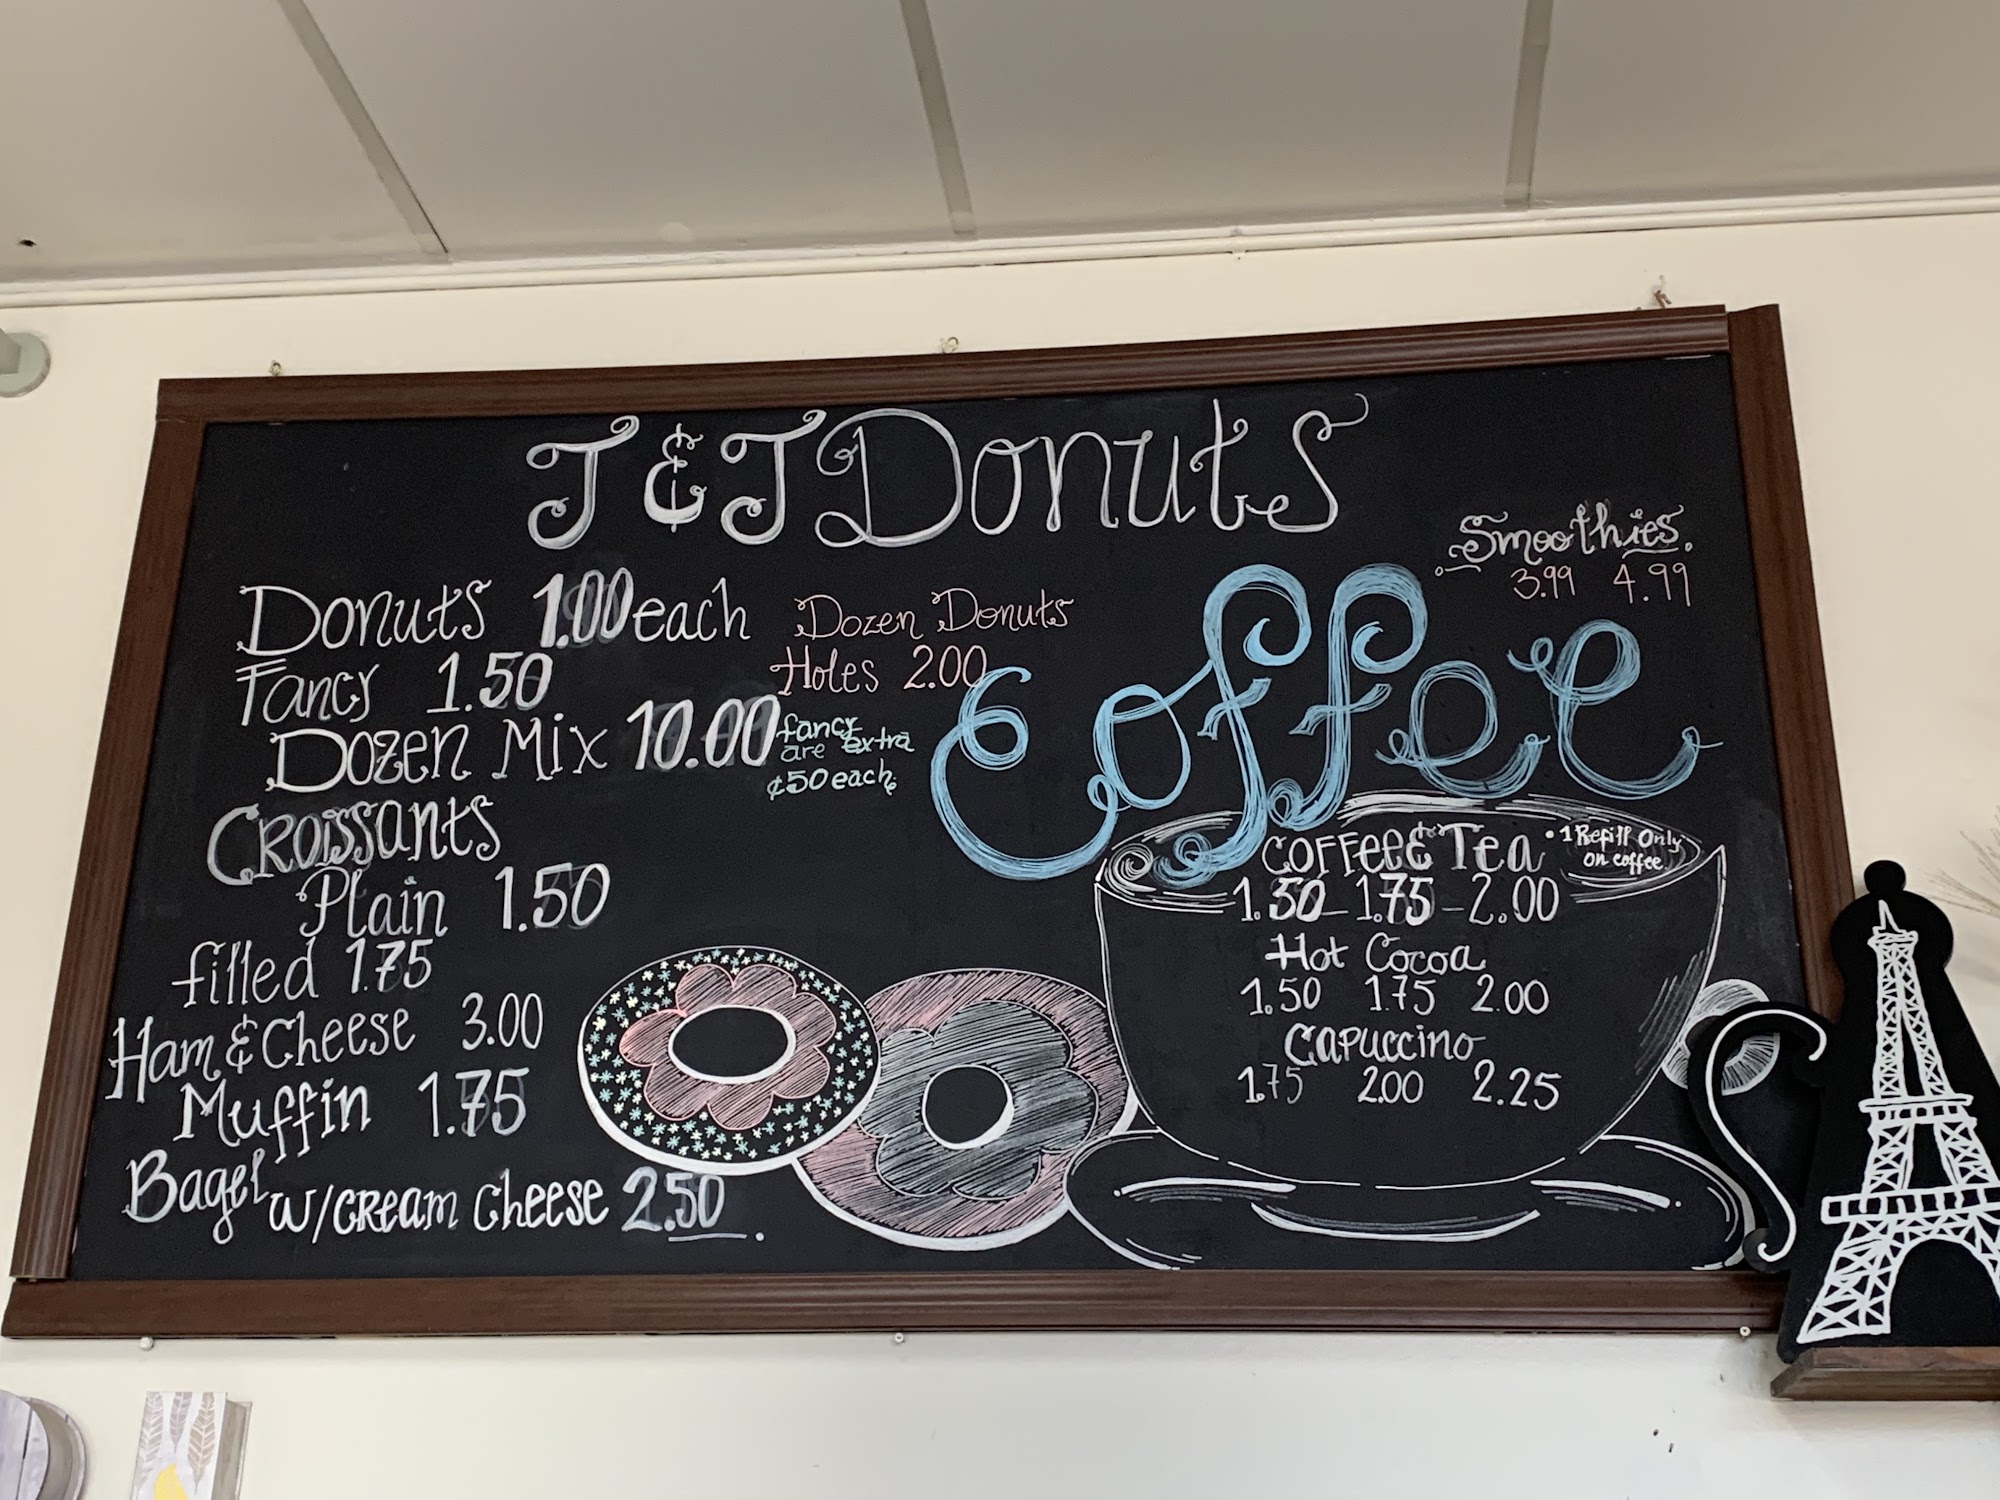 J & J Donuts
Donuts 1.00 each
Fancy 1.50
Dozen Mix 10.00
fancy
are extra
¢50 each.
Dozen Donuts
Holes 2.00
Croissants
Plain 1.50
filled 1.75
Ham & Cheese 3.00
Muffin 1.75
Bagel w/cream cheese 2.50
Smoothies
3.99 4.99
Coffee
Coffee & Tea
• 1 Refill Only
on coffee.
1.50 - 1.75 - 2.00
Hot Cocoa
1.50 1.75 2.00
Capuccino
1.75 2.00 2.25